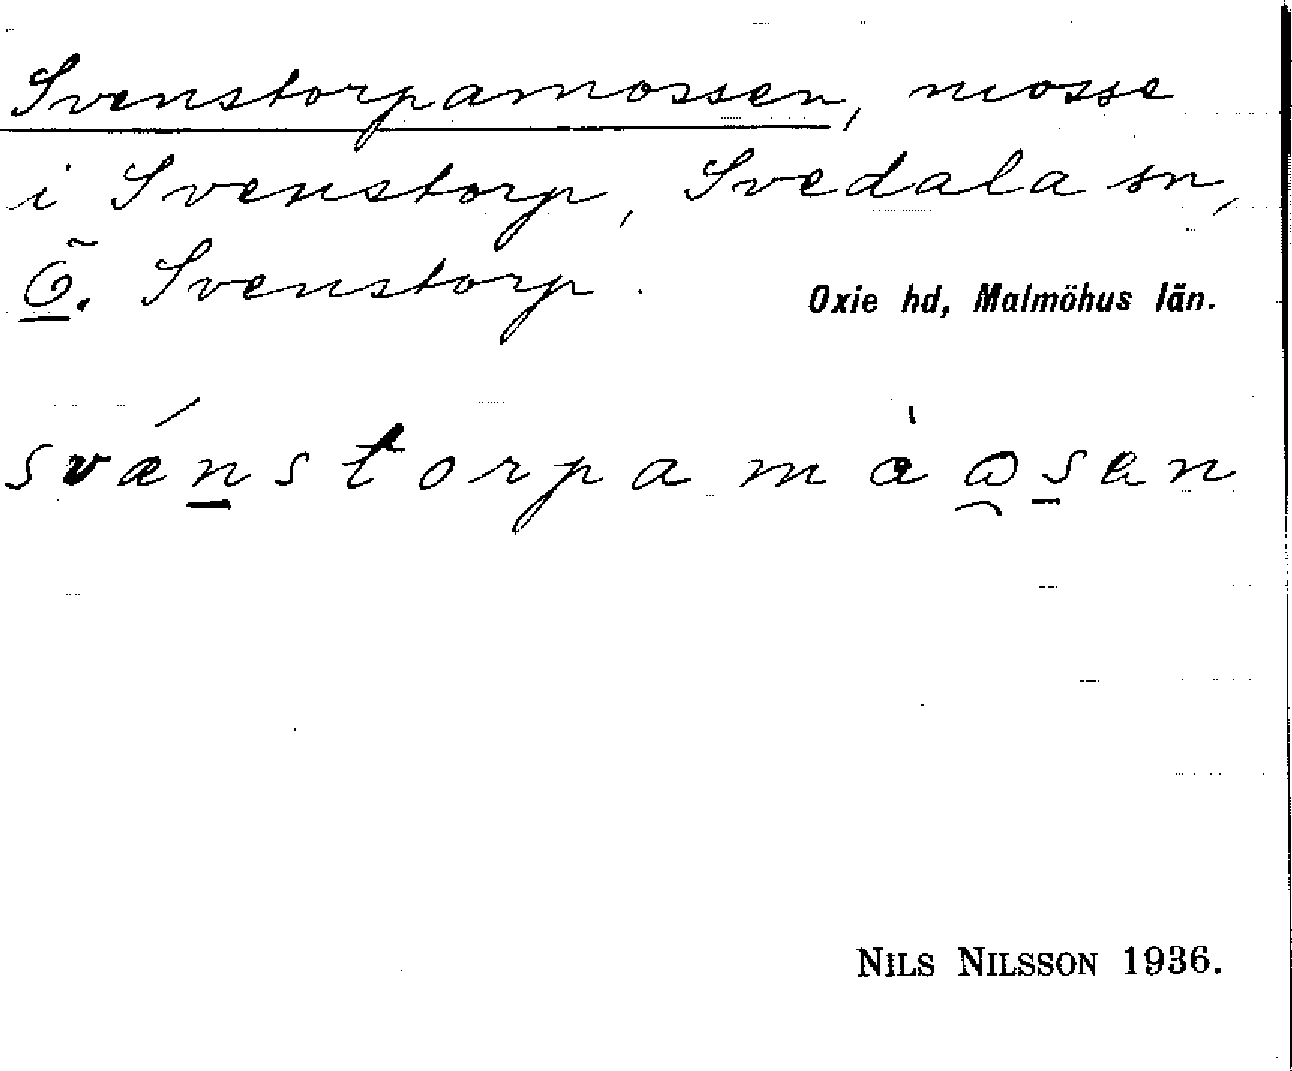 Svenstorpamossen, mosse
i Svenstorp, Svedala sn,
Ö. Svenstorp.
Oxie hd, Malmöhus län.
svǽnstorpamàosen
NILS NILSSON 1936.